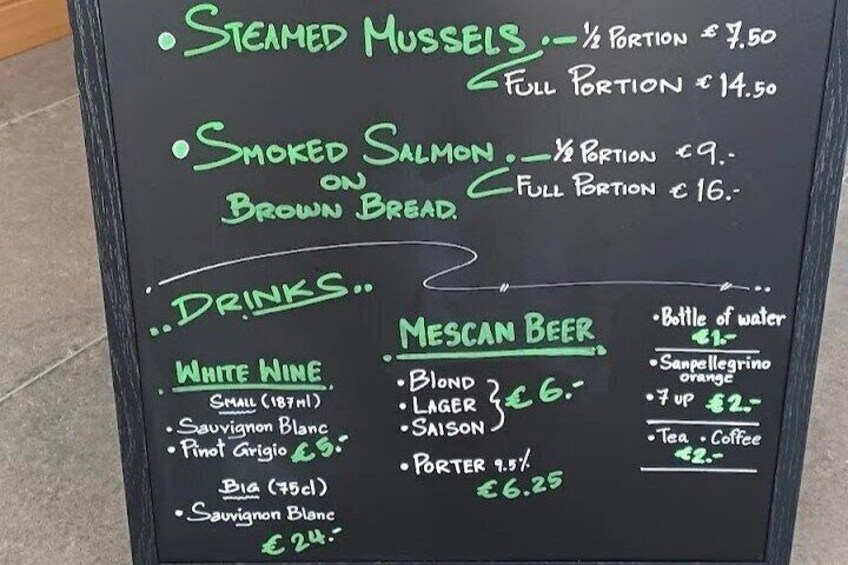 • STEAMED MUSSELS.— ½ PORTION € 7.50
FULL PORTION € 14.50
• SMOKED SALMON.— ½ PORTION € 9.-
ON
FULL PORTION € 16.-
BROWN BREAD.
..DRINKS..
WHITE WINE
SMALL (187ml)
• Sauvignon Blanc
• Pinot Grigio €5.-
BIG (75cl)
• Sauvignon Blanc
€ 24.-
MESCAN BEER
• BLOND
• LAGER
• SAISON
€ 6.-
• PORTER 9.5%
€6.25
• Bottle of water
€1.-
• Sanpellegrino
orange
• 7 UP €2.-
• Tea • Coffee
€2.-